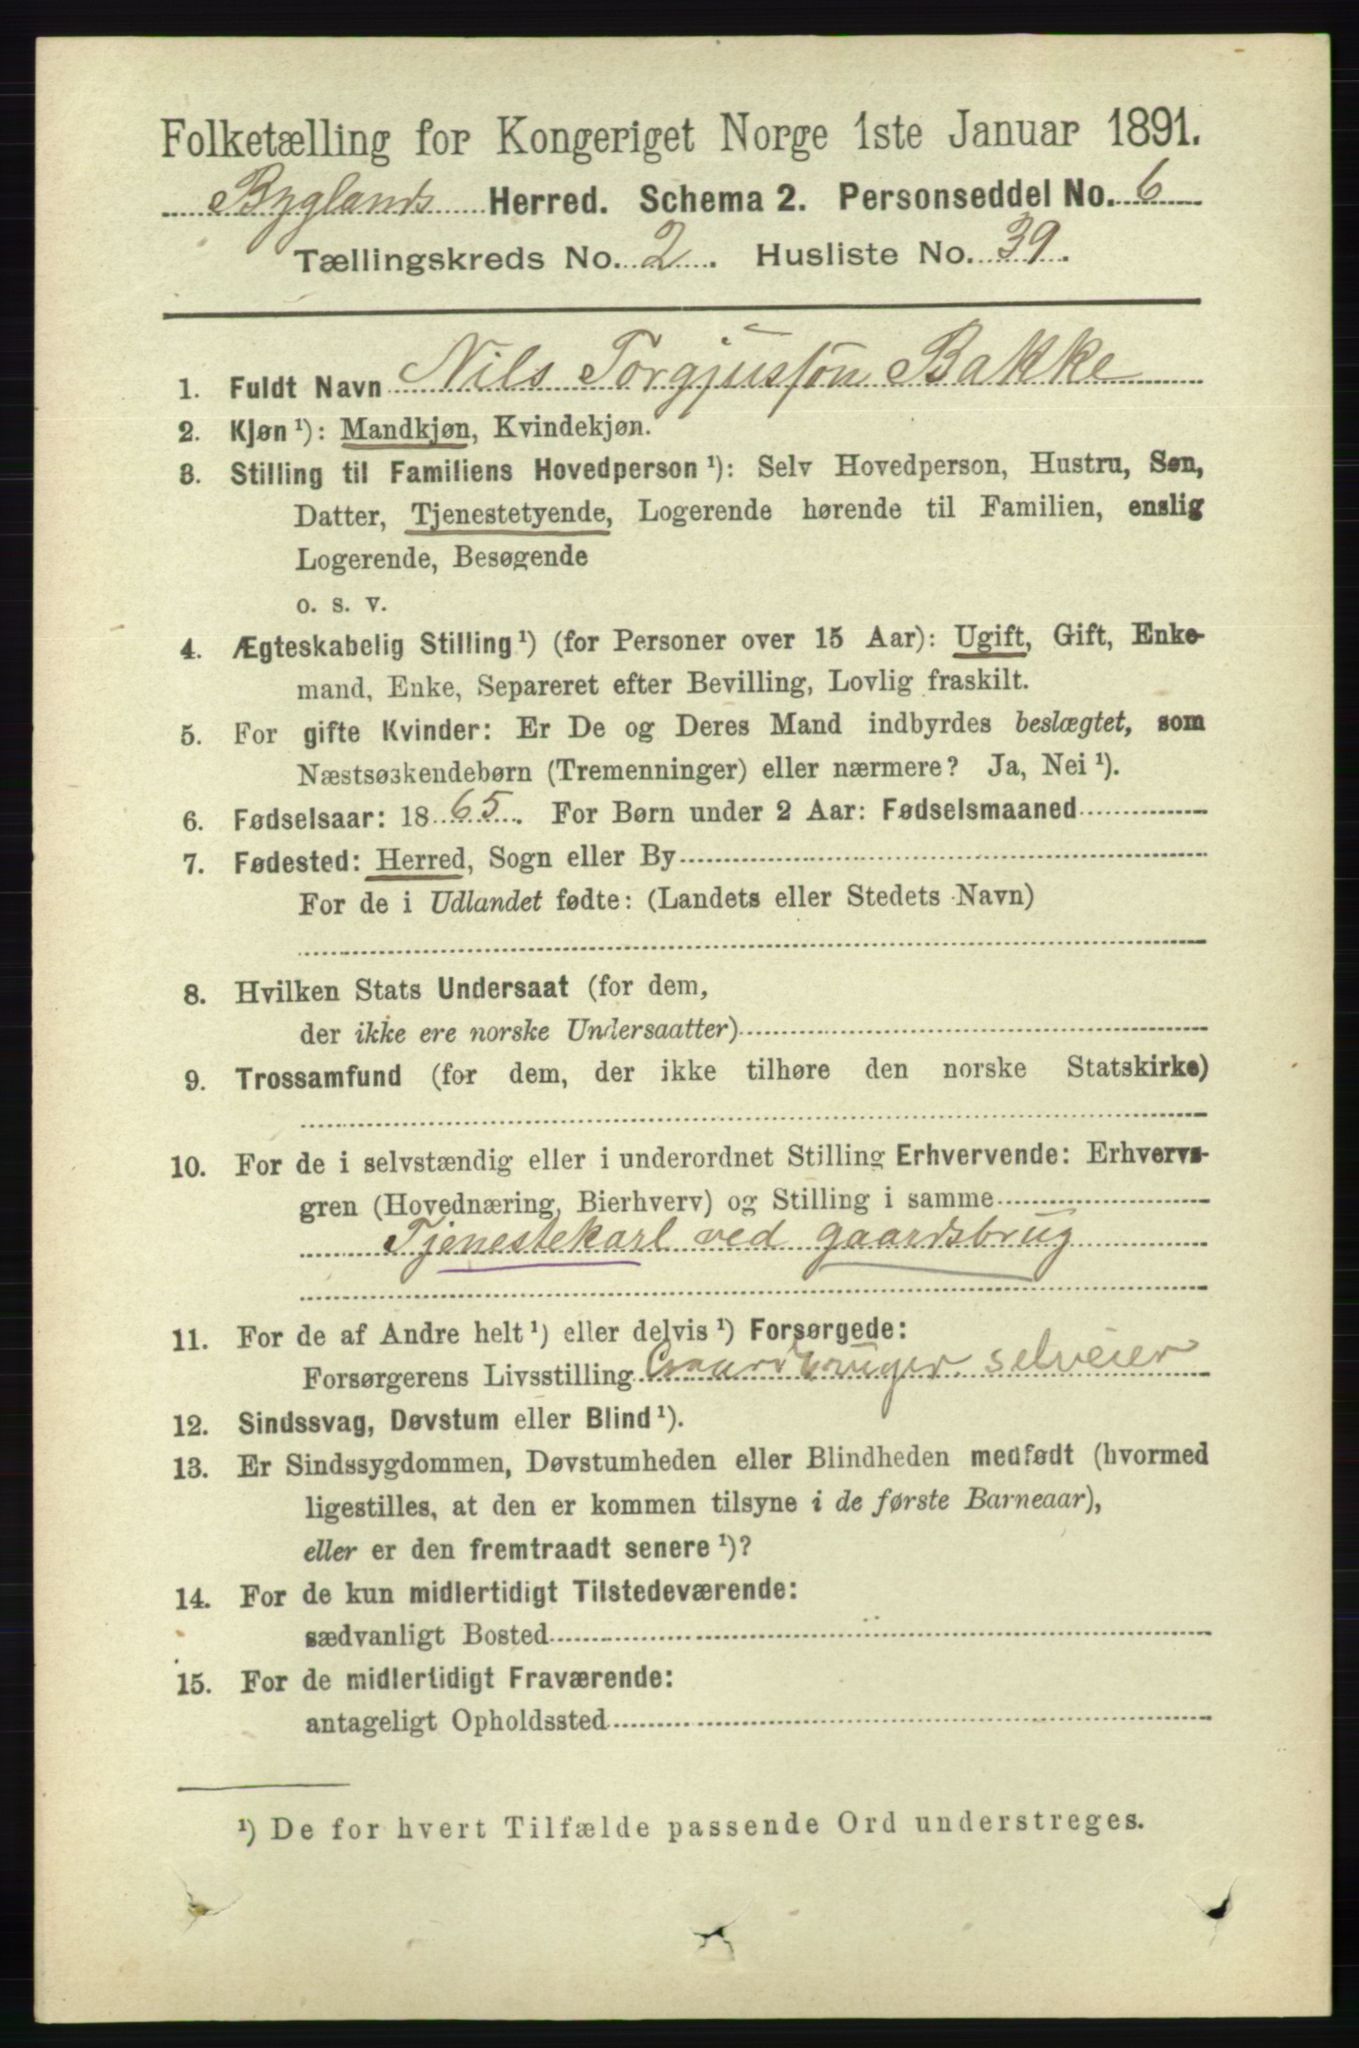 Folketælling for Kongeriget Norge 1ste Januar 1891.
Byglands Herred. Schema 2. Personseddel No. 6
Tællingskreds No. 2. Husliste No. 39.
1. Fuldt Navn Nils Torgjussøn Bakke
2. Kjøn ¹): Mandkjøn, Kvindekjøn.
3. Stilling til Familiens Hovedperson ¹): Selv Hovedperson, Hustru, Søn,
Datter, Tjenestetyende, Logerende hørende til Familien, enslig
Logerende, Besøgende
o. s. v.
4. Ægteskabelig Stilling ¹) (for Personer over 15 Aar): Ugift, Gift, Enke-
mand, Enke, Separeret efter Bevilling, Lovlig fraskilt.
5. For gifte Kvinder: Er De og Deres Mand indbyrdes beslægtet, som
Næstsøskendebørn (Tremenninger) eller nærmere? Ja, Nei ¹).
6. Fødselsaar: 1865. For Børn under 2 Aar: Fødselsmaaned
7. Fødested: Herred, Sogn eller By
For de i Udlandet fødte: (Landets eller Stedets Navn)
8. Hvilken Stats Undersaat (for dem,
der ikke ere norske Undersaatter)
9. Trossamfund (for dem, der ikke tilhøre den norske Statskirke)
10. For de i selvstændig eller i underordnet Stilling Erhvervende: Erhvervs-
gren (Hovednæring, Bierhverv) og Stilling i samme
Tjenestekarl ved gaardsbrug
11. For de af Andre helt ¹) eller delvis ¹) Forsørgede:
Forsørgerens Livsstilling Gaardbruger, selveier
12. Sindssvag, Døvstum eller Blind ¹).
13. Er Sindssygdommen, Døvstumheden eller Blindheden medfødt (hvormed
ligestilles, at den er kommen tilsyne i de første Barneaar),
eller er den fremtraadt senere ¹)?
14. For de kun midlertidigt Tilstedeværende:
sædvanligt Bosted
15. For de midlertidigt Fraværende:
antageligt Opholdssted
¹) De for hvert Tilfælde passende Ord understreges.